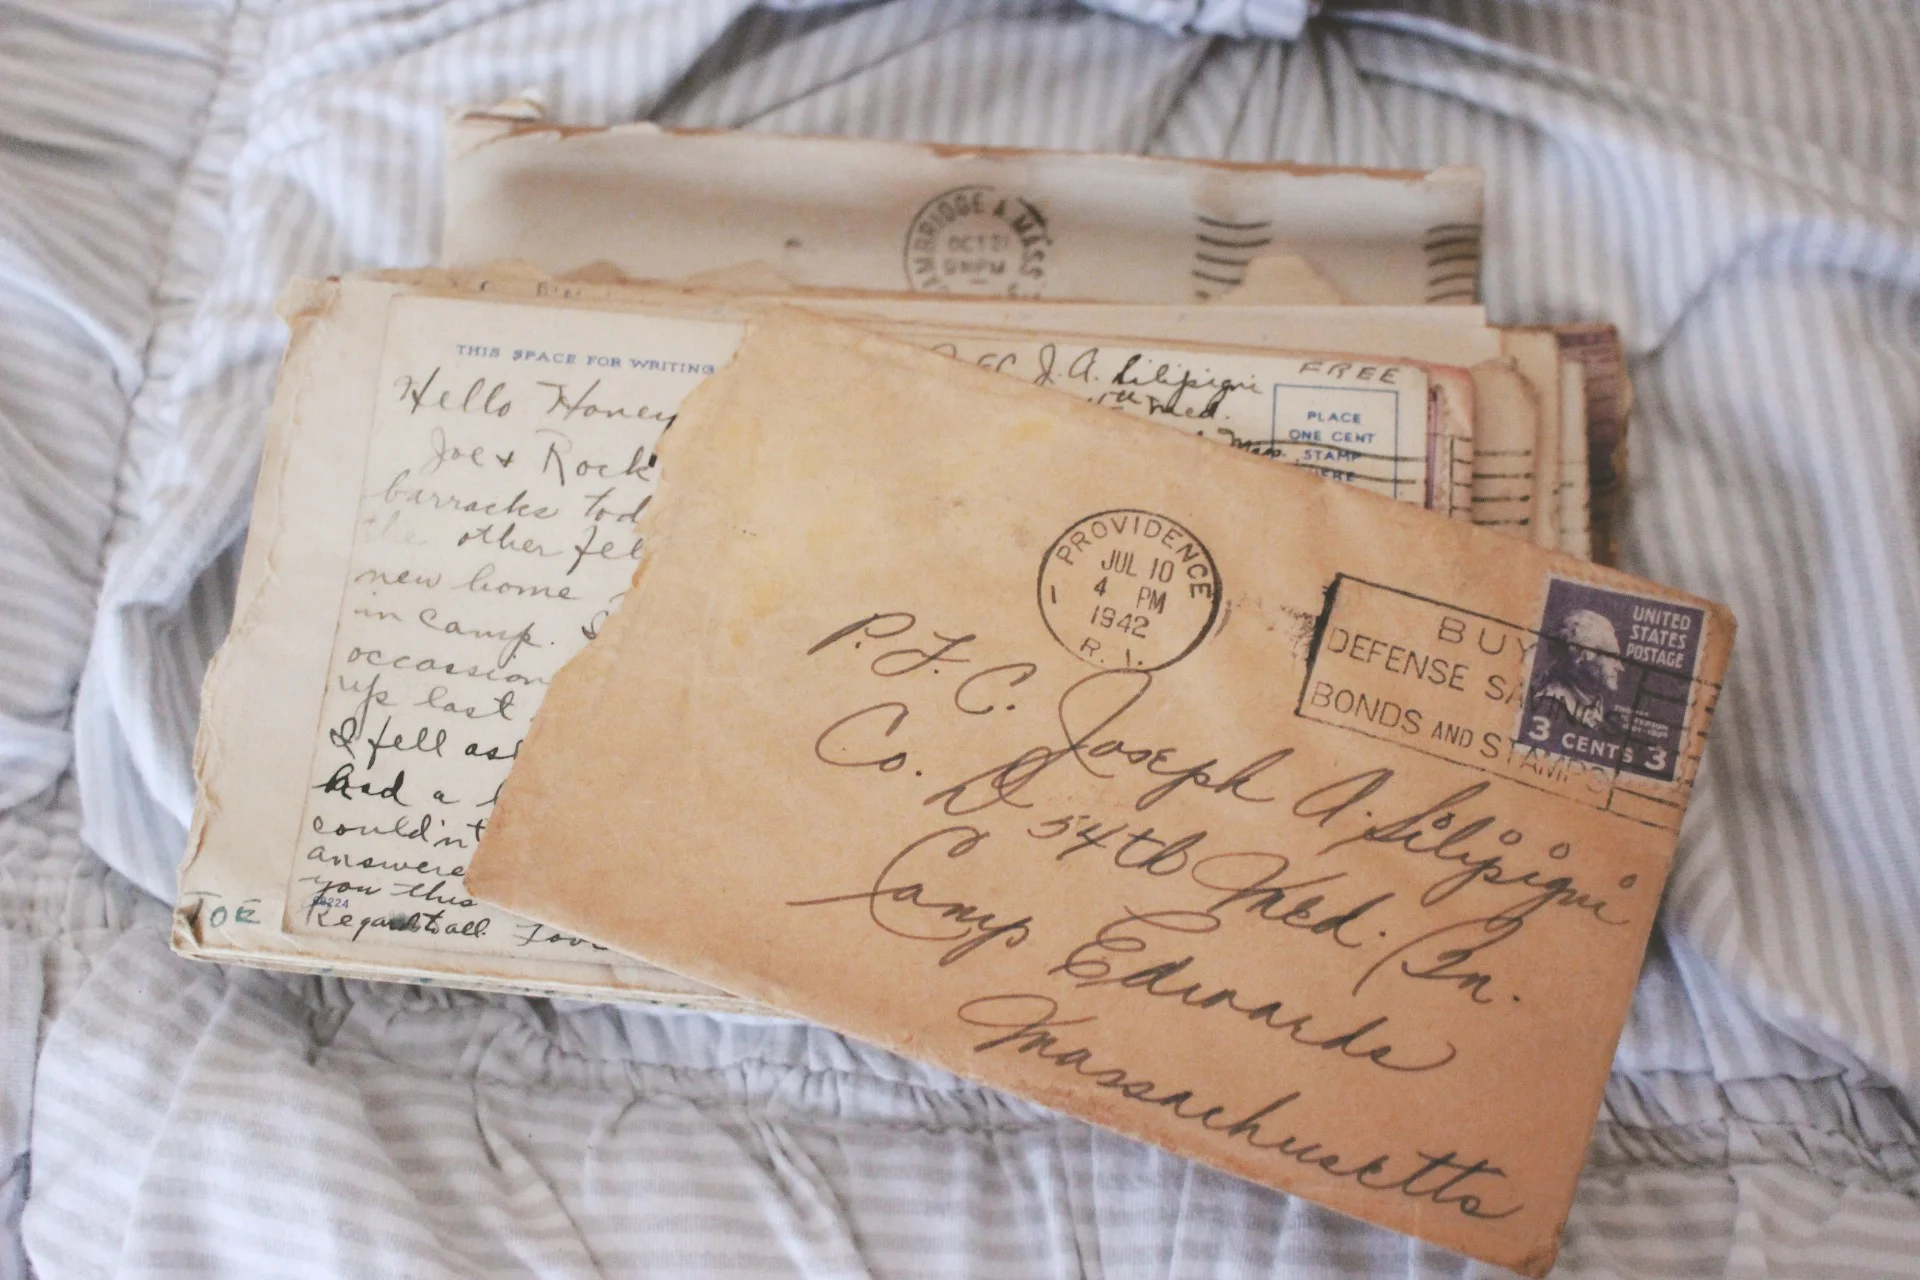 CAMBRIDGE A MASS
OCT 21
9 PM
THIS SPACE FOR WRITING
Hello Honey
Joe & Rock
barracks tod
the other fel
new home
in camp. S
occassion
up last
I fell asl
had a
couldn't
answere
you this
Regards to all. Love
JOE
J. A. Silipigni
Med.
Mass.
FREE
PLACE
ONE CENT
STAMP
HERE
PROVIDENCE
JUL 10
4 PM
1942
R. I.
1
BUY
DEFENSE SAVINGS
BONDS AND STAMPS
UNITED
STATES
POSTAGE
3 CENTS 3
P.F.C. Joseph A. Silipigni
Co. D 54th Med. Bn.
Camp Edwards
Massachusetts